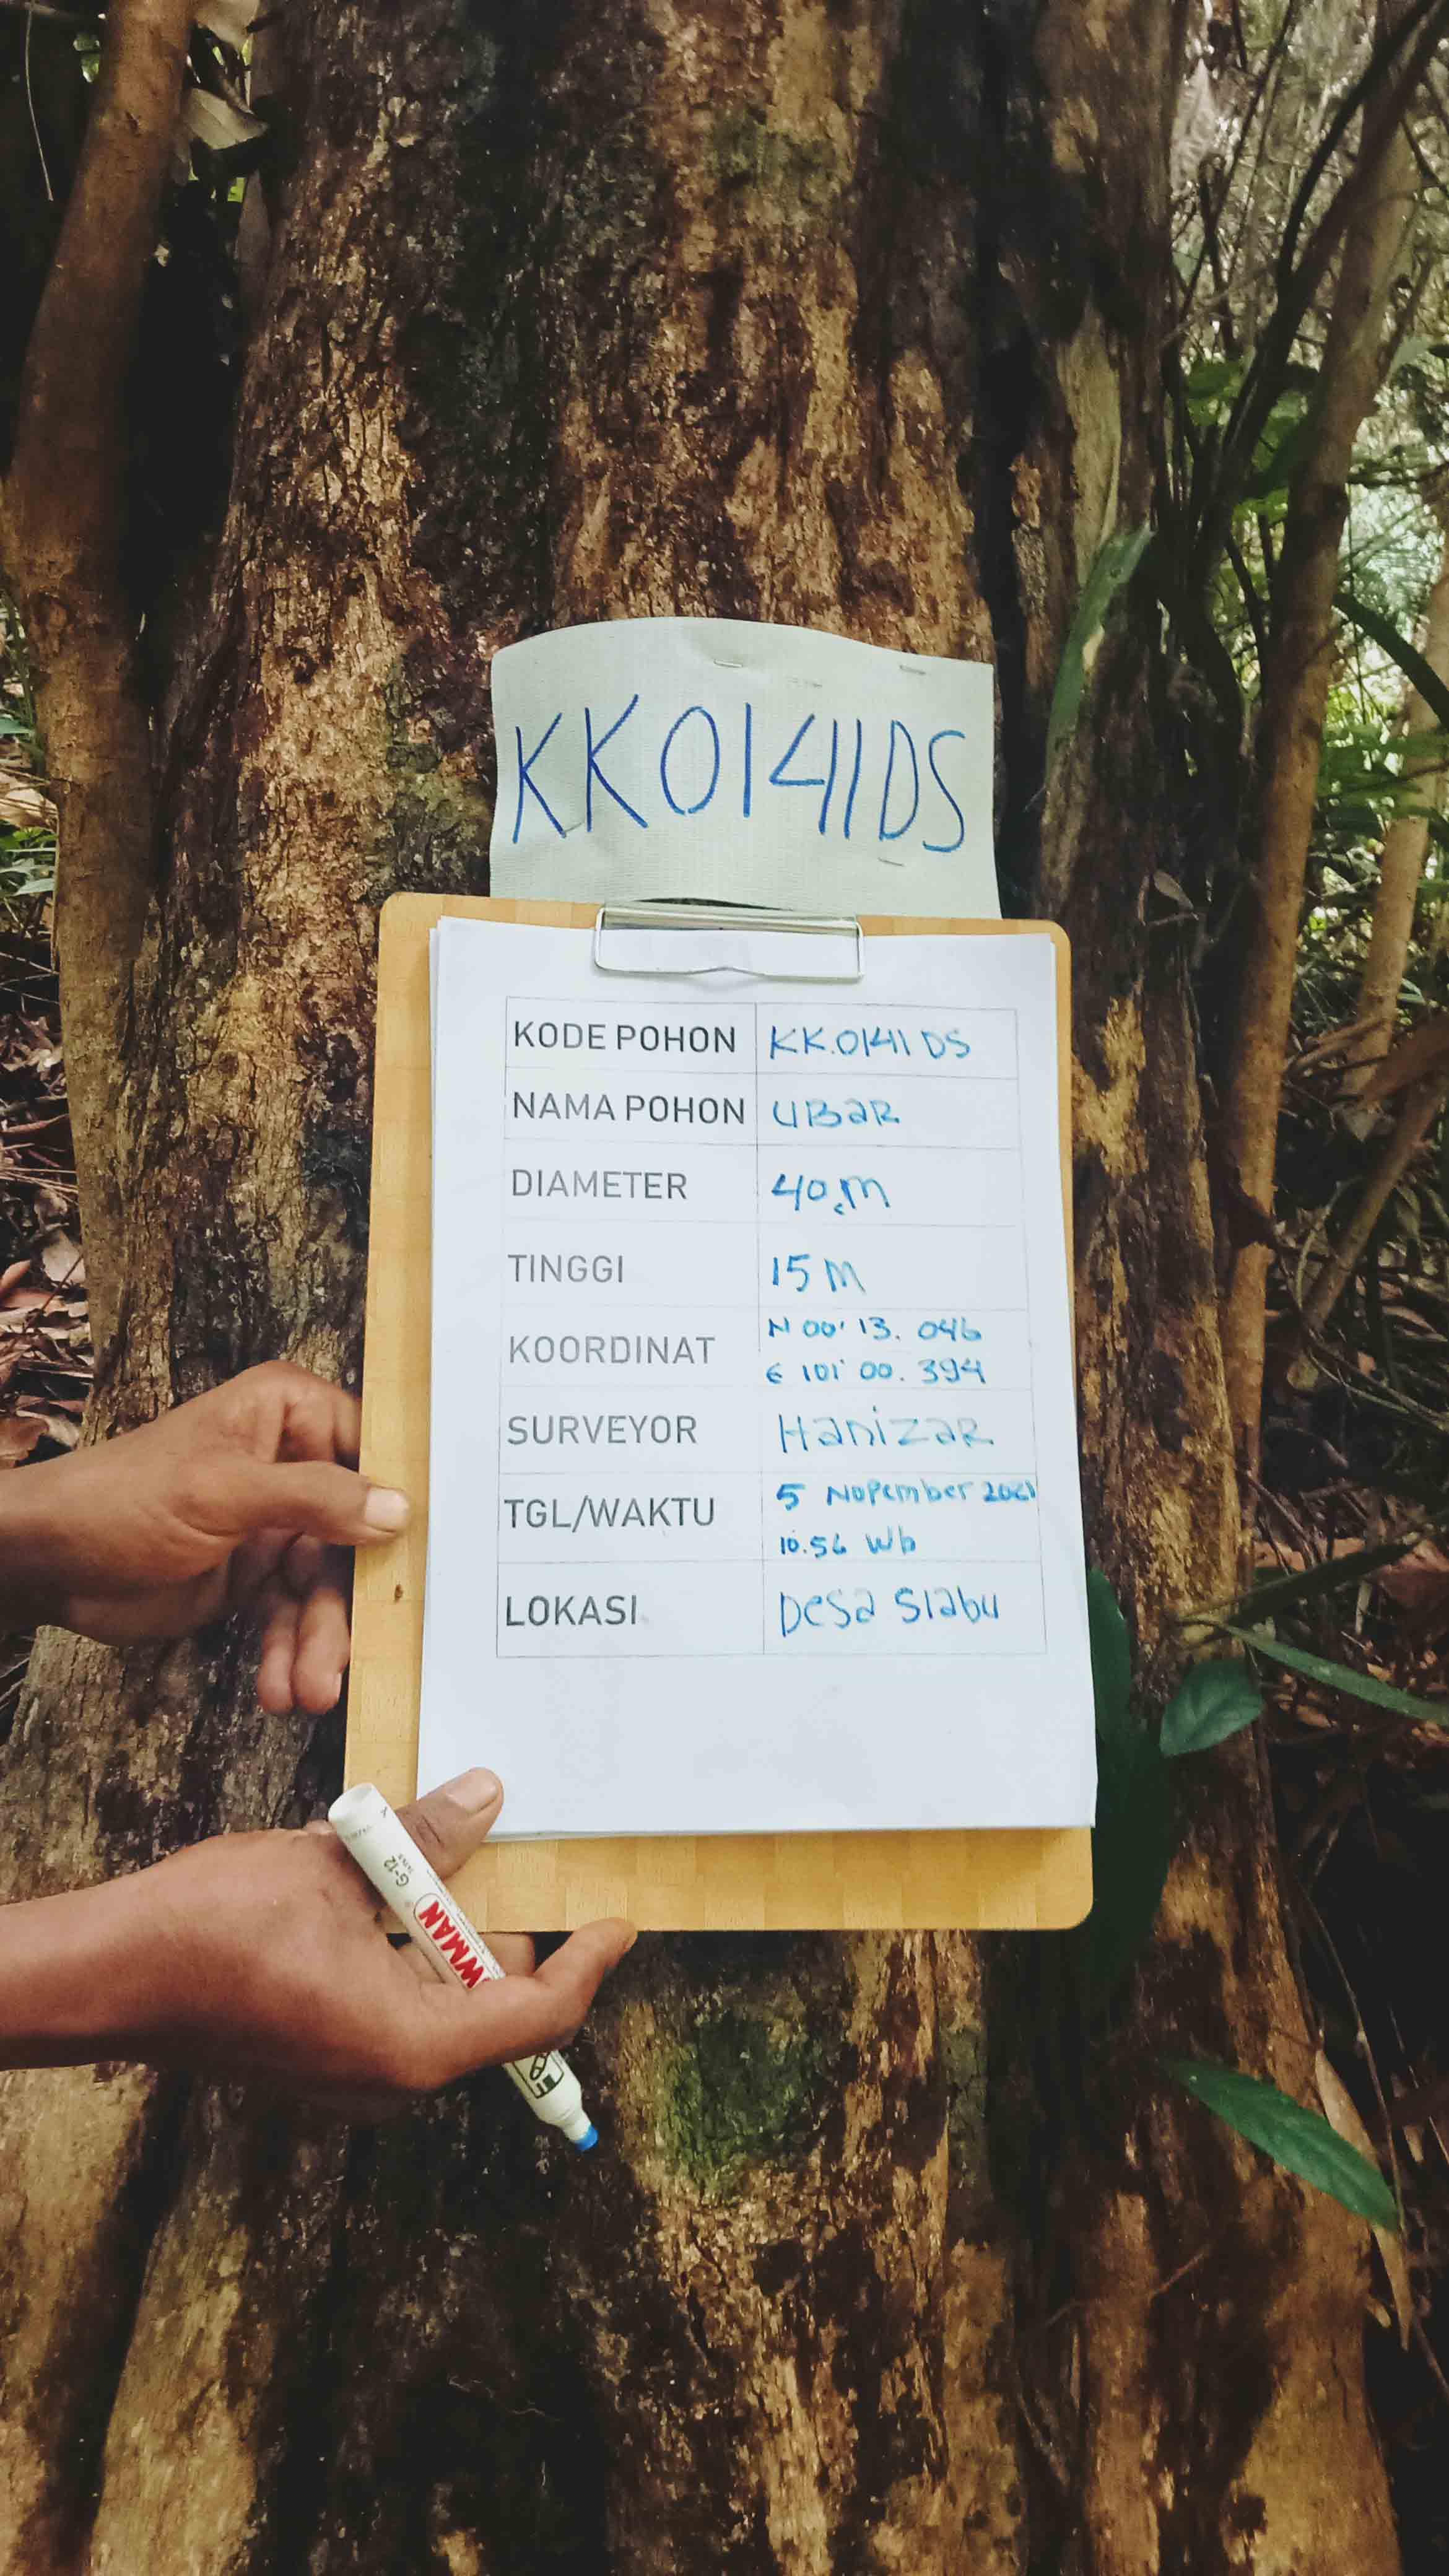 KK01411DS
KODE POHON KK.01411 DS
NAMA POHON UBaR
DIAMETER 40cm
TINGGI 15 M
KOORDINAT N 00' 13. 046
E 101' 00. 394
SURVEYOR HanizaR
TGL/WAKTU 5 Nopember 2021
10.56 Wb
LOKASI Desa Siabu
G-12
WMAN